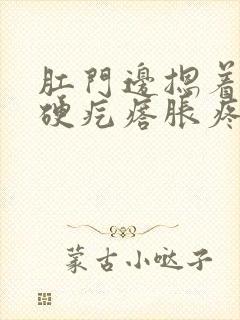 肛門邊摁着
硬疙瘩脹疼
蒙古小哒子